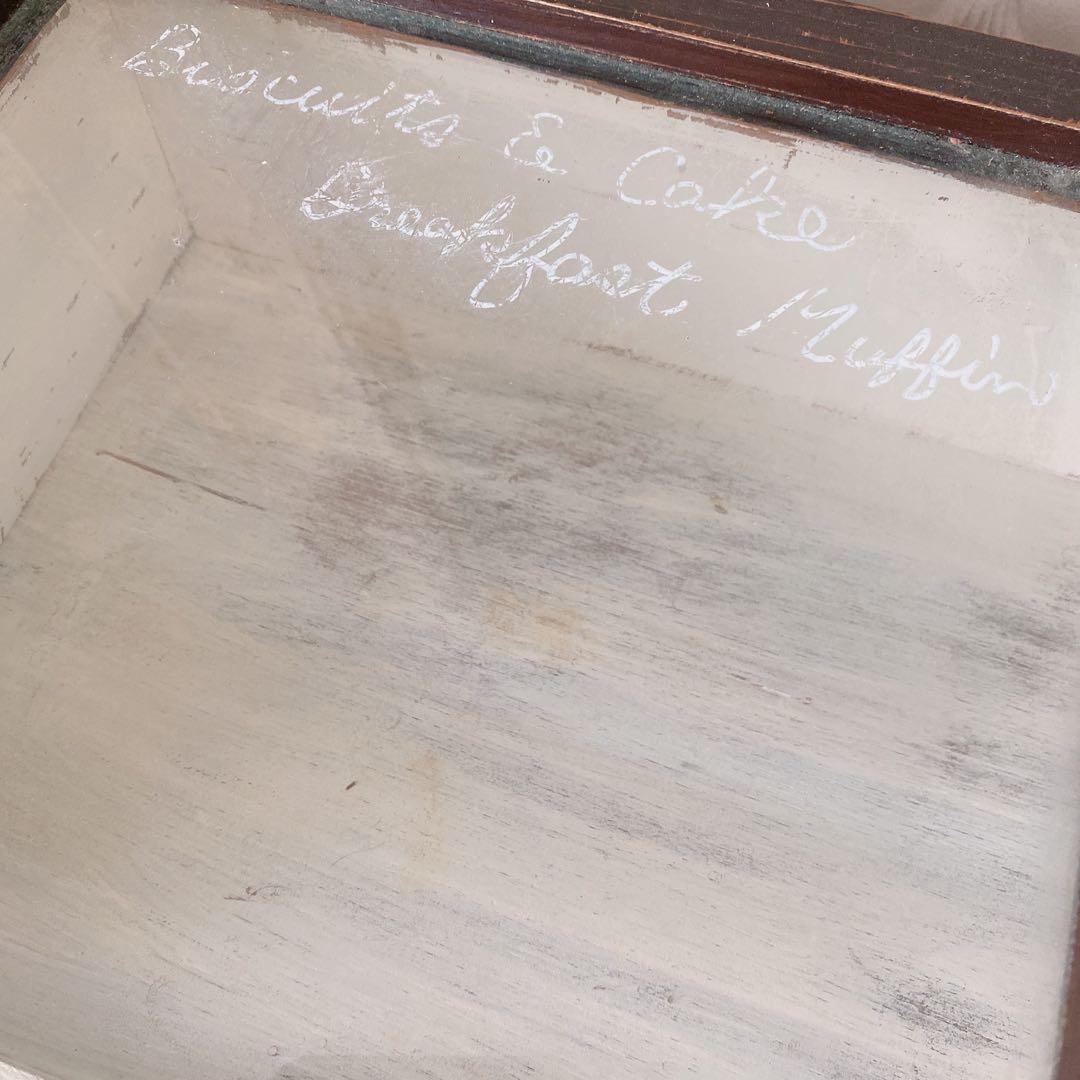 Biscuits & Cake
Breakfast Muffin